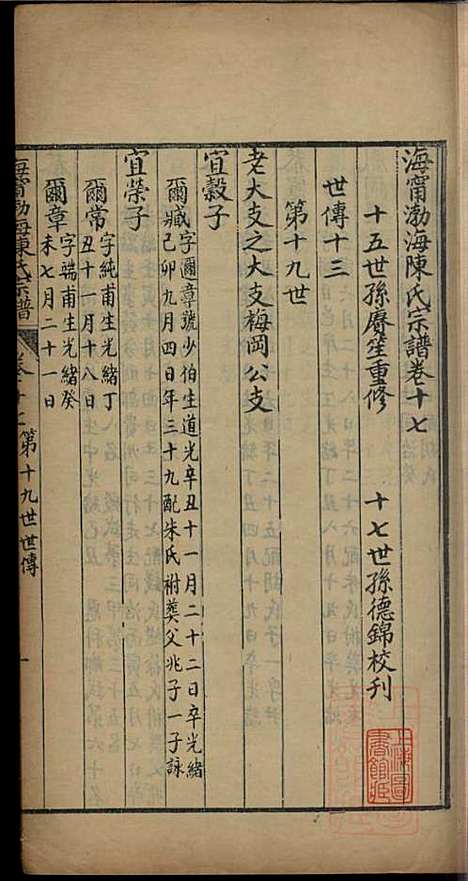 海甯渤海陳氏宗譜卷十七
十五世孫賡笙重修　十七世孫德錦校刊
世傳十三
第十九世
老大支之大支梅岡公支
宜穀子
爾臧字爾章號少伯生道光辛丑十一月二十二日卒光緒
己卯九月四日年三十九配朱氏祔葬父兆子一子詠
宜榮子
爾常字純甫生光緒丁
丑十一月十八日
爾章字端甫生光緒癸
未七月二十一日
海甯渤海陳氏宗譜　卷十七　第十九世世傳　一
上海圖書館藏